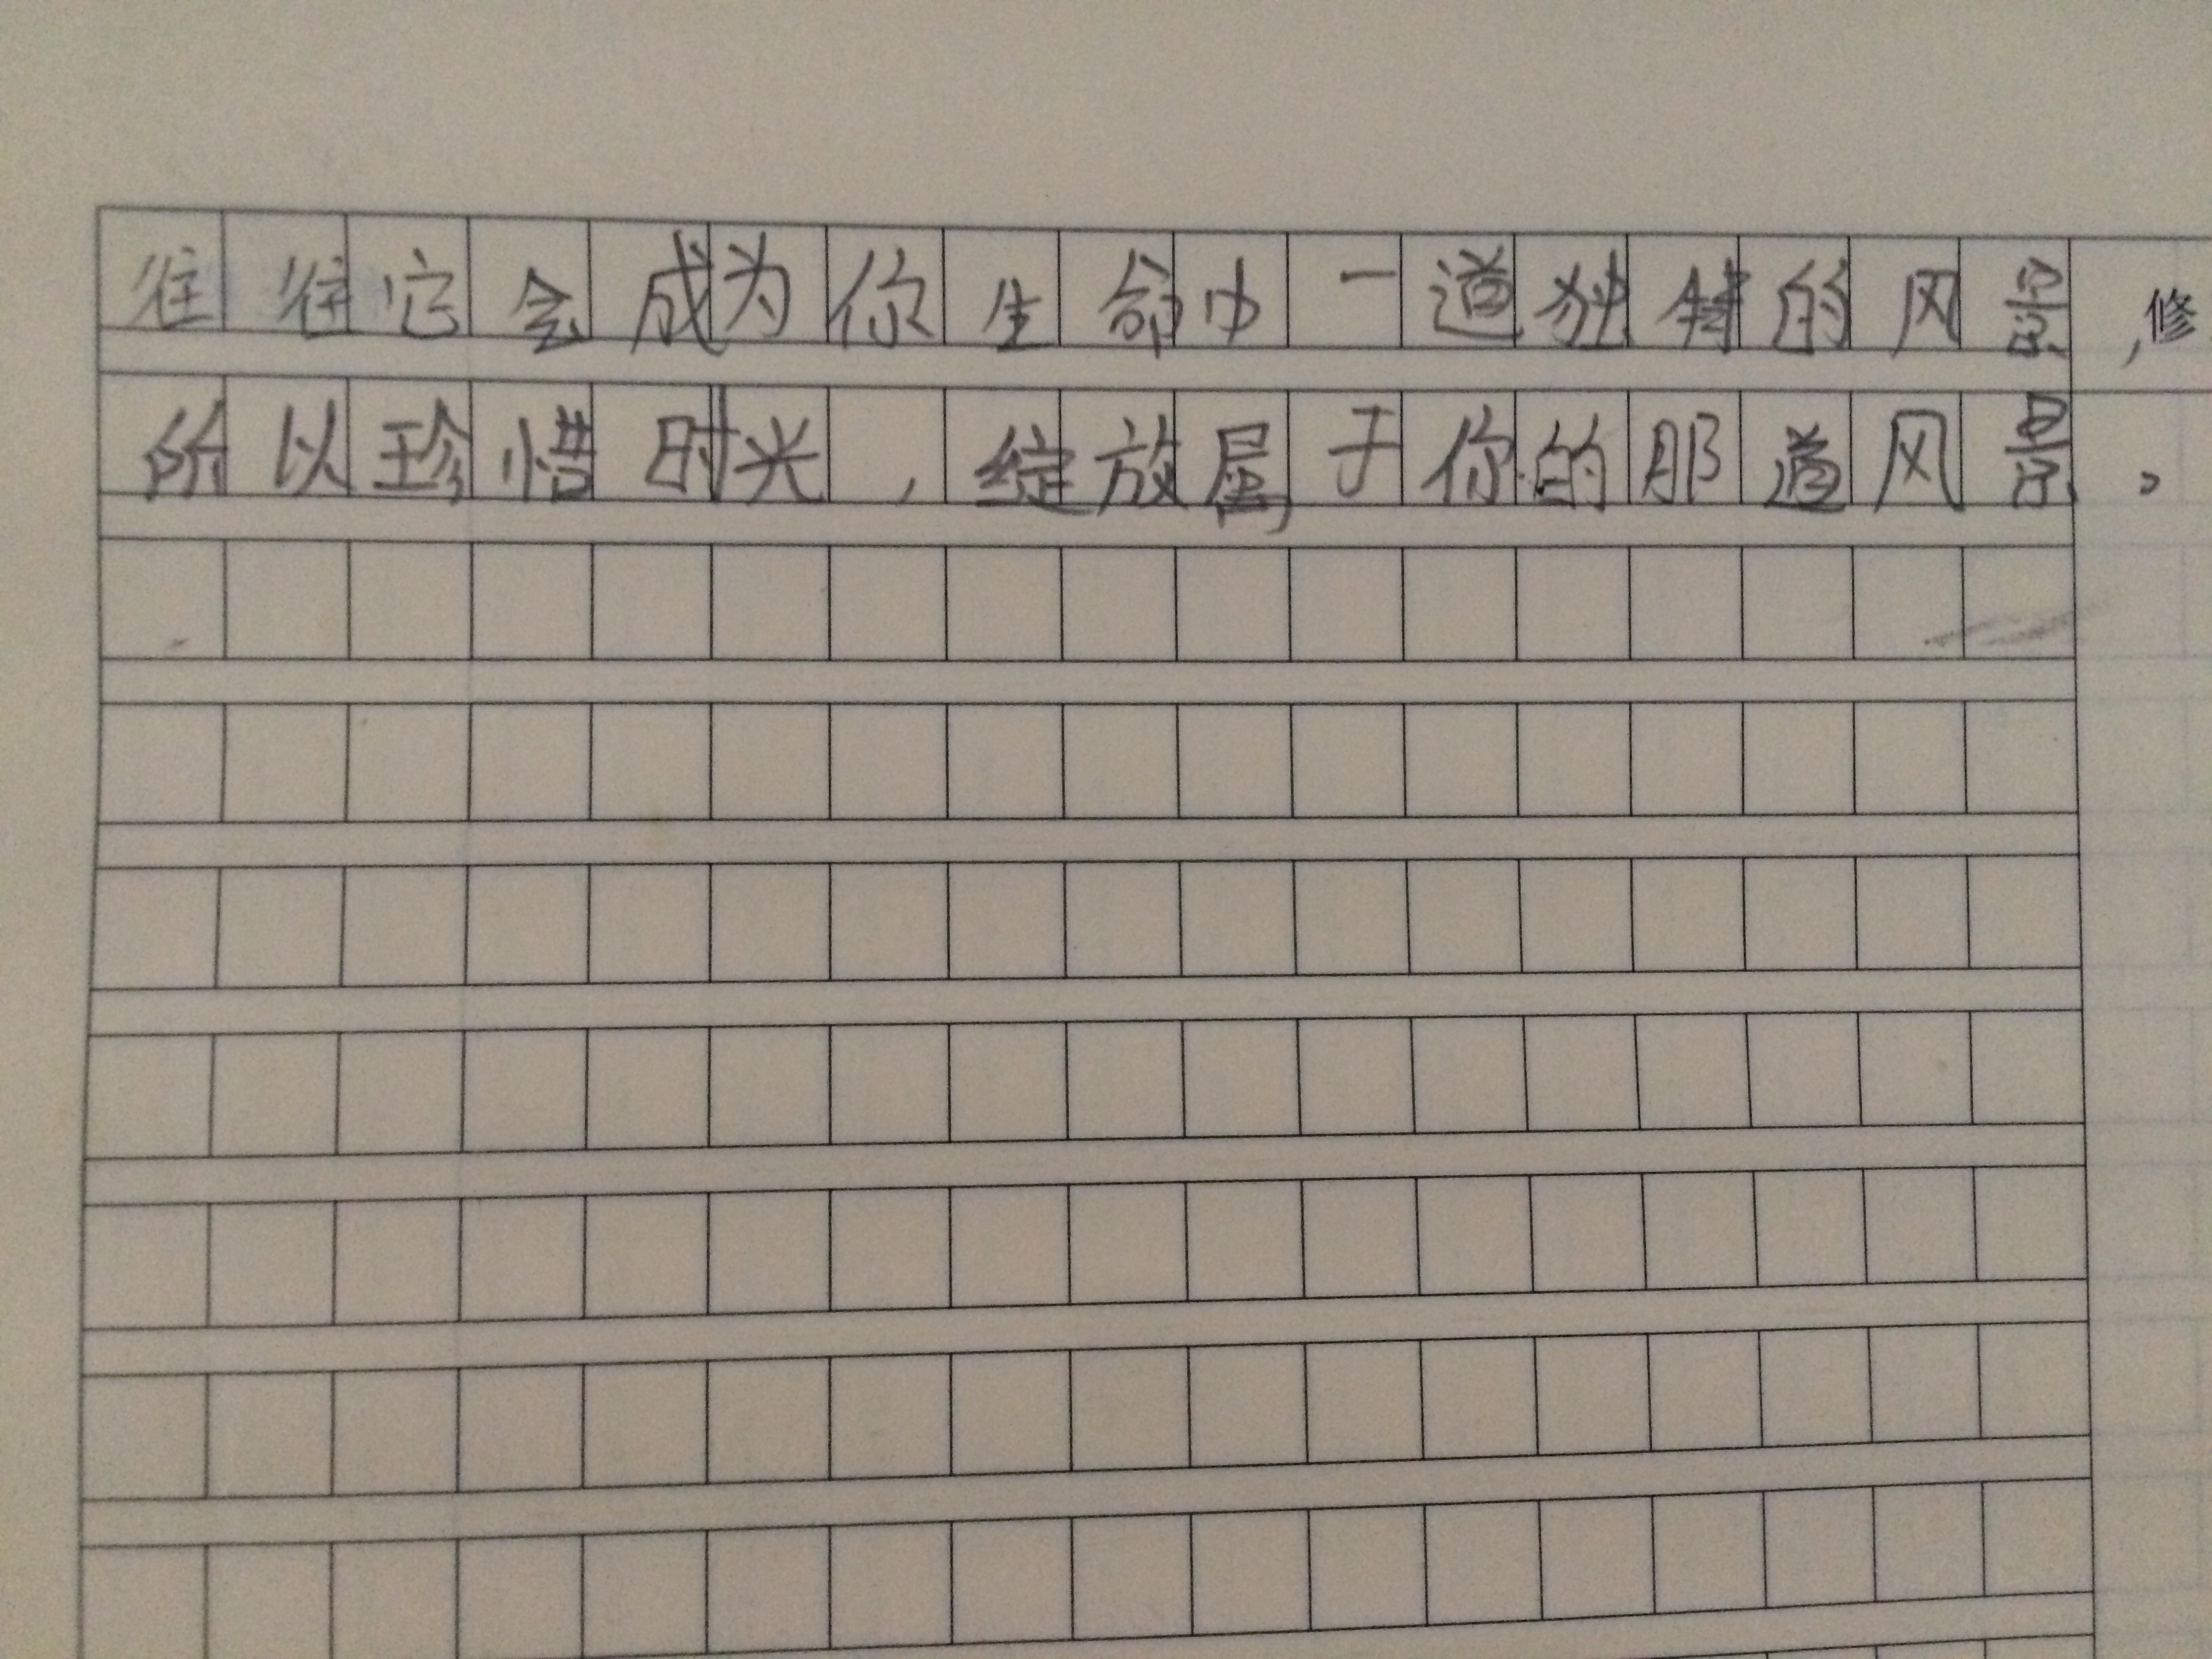 往往它会成为你生命中一道独特的风景，修
所以珍惜时光，绽放属于你的那道风景。